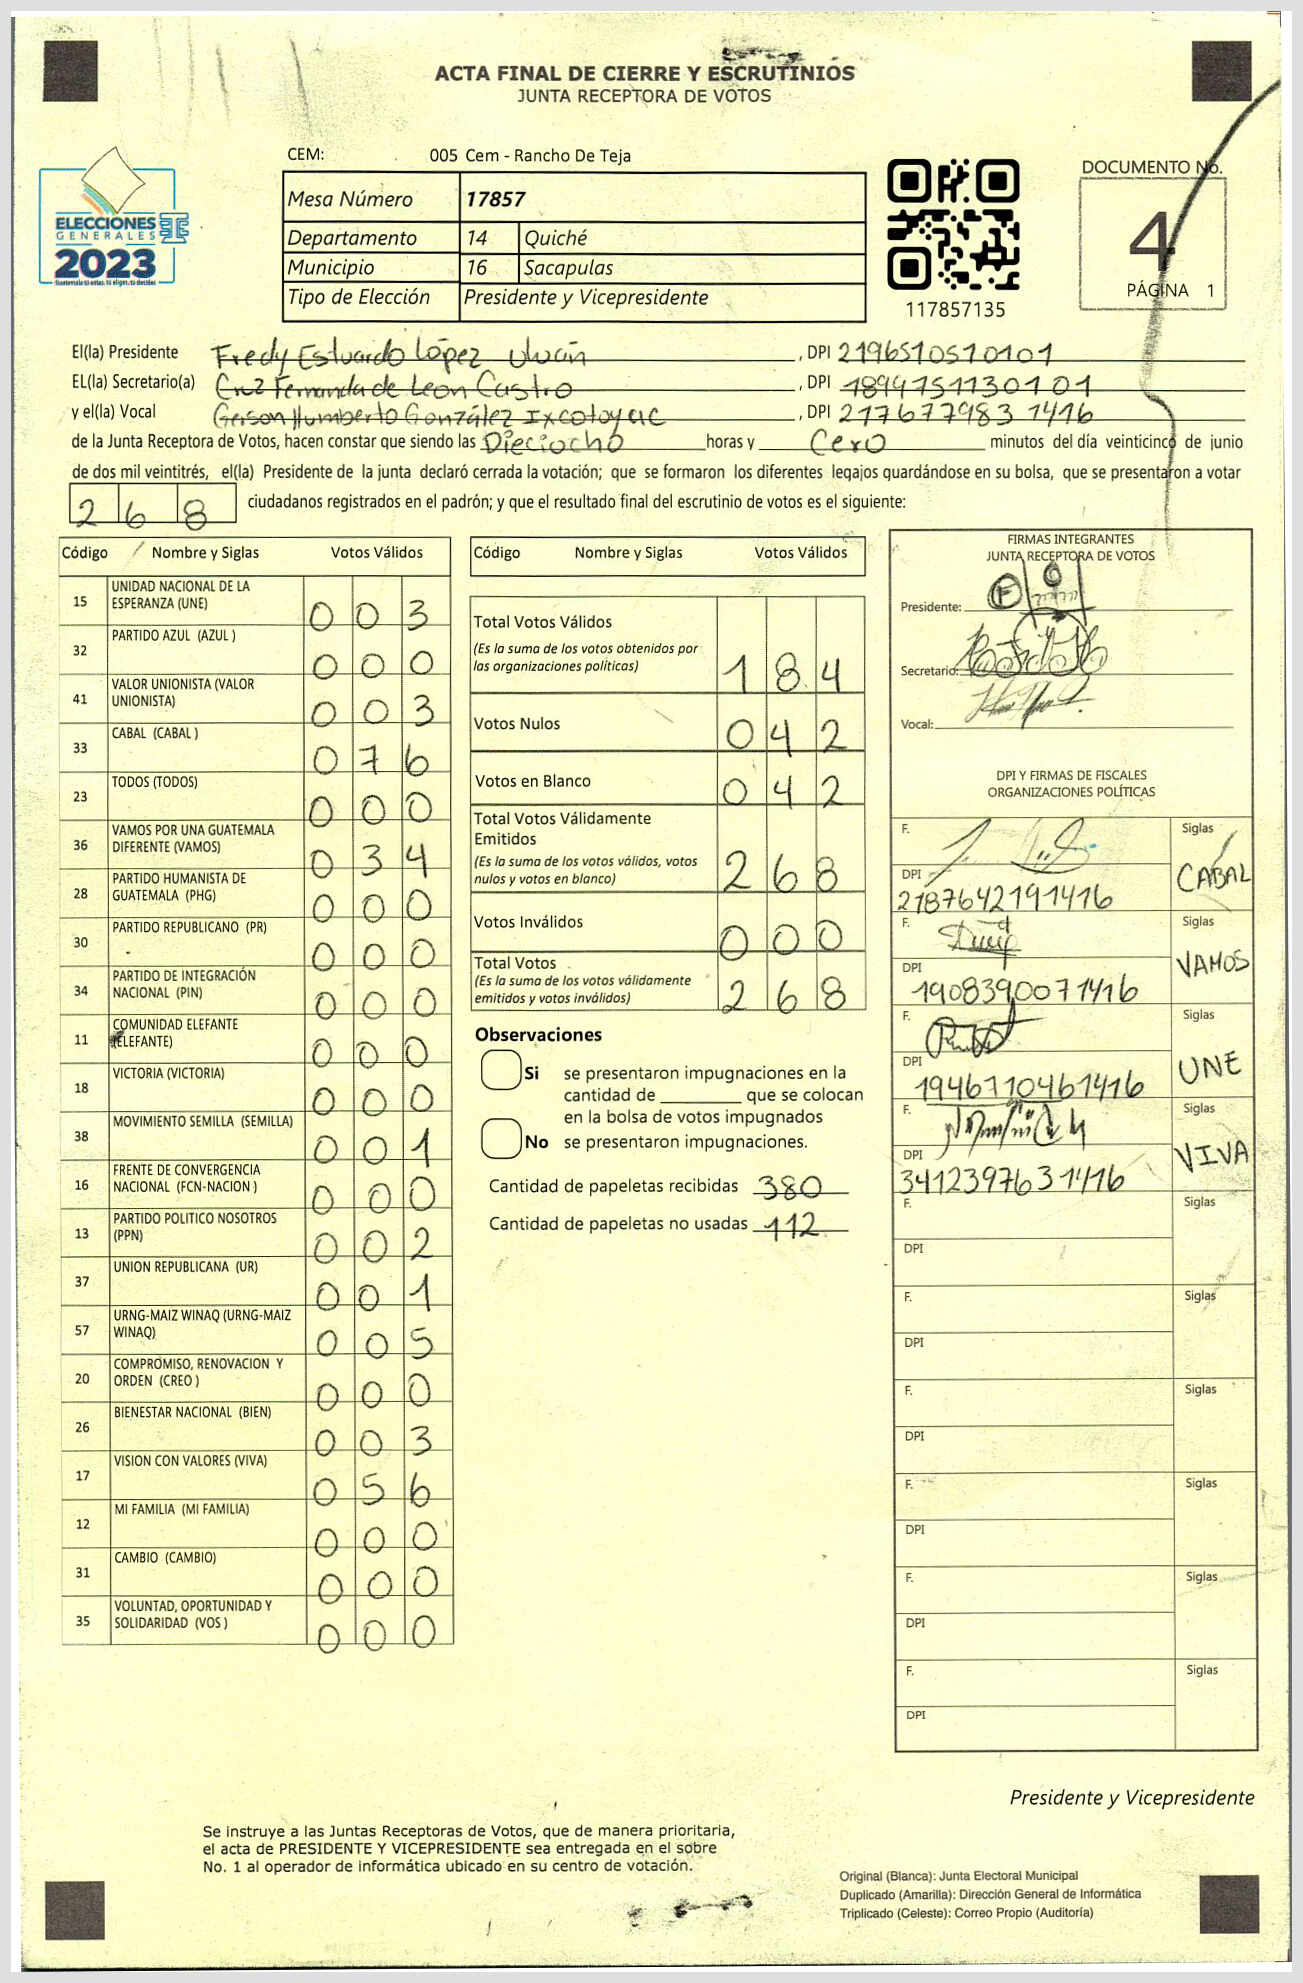 ACTA FINAL DE CIERRE Y ESCRUTINIOS
JUNTA RECEPTORA DE VOTOS
CEM: 005 Cem - Rancho De Teja
ELECCIONES
GENERALES
2023
Mesa Número 17857
Departamento 14 Quiché
Municipio 16 Sacapulas
Tipo de Elección Presidente y Vicepresidente
117857135
DOCUMENTO No.
4
PÁGINA 1
El(la) Presidente Fredy Estuardo López , DPI 2196510510101
EL(la) Secretario(a) Cruz Fernanda de Leon Castro , DPI 1899751130101
y el(la) Vocal Gerson Humberto González Ixcotoyac , DPI 217677983 1416
de la Junta Receptora de Votos, hacen constar que siendo las Dieciocho horas y Cero minutos del día veinticinco de junio
de dos mil veintitrés, el(la) Presidente de la junta declaró cerrada la votación; que se formaron los diferentes legajos guardándose en su bolsa, que se presentaron a votar
268 ciudadanos registrados en el padrón; y que el resultado final del escrutinio de votos es el siguiente:
Código Nombre y Siglas Votos Válidos
15 UNIDAD NACIONAL DE LA ESPERANZA (UNE) 003
32 PARTIDO AZUL (AZUL ) 000
41 VALOR UNIONISTA (VALOR UNIONISTA) 003
33 CABAL (CABAL ) 076
23 TODOS (TODOS) 000
36 VAMOS POR UNA GUATEMALA DIFERENTE (VAMOS) 034
28 PARTIDO HUMANISTA DE GUATEMALA (PHG) 000
30 PARTIDO REPUBLICANO (PR) 000
34 PARTIDO DE INTEGRACIÓN NACIONAL (PIN) 000
11 COMUNIDAD ELEFANTE (ELEFANTE) 000
18 VICTORIA (VICTORIA) 000
38 MOVIMIENTO SEMILLA (SEMILLA) 001
16 FRENTE DE CONVERGENCIA NACIONAL (FCN-NACION ) 000
13 PARTIDO POLITICO NOSOTROS (PPN) 002
37 UNION REPUBLICANA (UR) 001
57 URNG-MAIZ WINAQ (URNG-MAIZ WINAQ) 005
20 COMPROMISO, RENOVACION Y ORDEN (CREO ) 000
26 BIENESTAR NACIONAL (BIEN) 003
17 VISION CON VALORES (VIVA) 056
12 MI FAMILIA (MI FAMILIA) 000
31 CAMBIO (CAMBIO) 000
35 VOLUNTAD, OPORTUNIDAD Y SOLIDARIDAD (VOS ) 000
Código Nombre y Siglas Votos Válidos
Total Votos Válidos
(Es la suma de los votos obtenidos por
las organizaciones políticas) 184
Votos Nulos 042
Votos en Blanco 042
Total Votos Válidamente
Emitidos
(Es la suma de los votos válidos, votos
nulos y votos en blanco) 268
Votos Inválidos 000
Total Votos
(Es la suma de los votos válidamente
emitidos y votos inválidos) 268
Observaciones
Si se presentaron impugnaciones en la
cantidad de ________ que se colocan
en la bolsa de votos impugnados
No se presentaron impugnaciones.
Cantidad de papeletas recibidas 380
Cantidad de papeletas no usadas 112
FIRMAS INTEGRANTES
JUNTA RECEPTORA DE VOTOS
Presidente:
Secretario:
Vocal:
DPI Y FIRMAS DE FISCALES
ORGANIZACIONES POLÍTICAS
F. Siglas
CABAL
DPI
2187642191416
F. Siglas
VAMOS
DPI
1908390071416
F. Siglas
UNE
DPI
1946710461416
F. Siglas
VIVA
DPI
3412397631416
F. Siglas
DPI
F. Siglas
DPI
F. Siglas
DPI
F. Siglas
DPI
F. Siglas
DPI
F. Siglas
DPI
Presidente y Vicepresidente
Se instruye a las Juntas Receptoras de Votos, que de manera prioritaria,
el acta de PRESIDENTE Y VICEPRESIDENTE sea entregada en el sobre
No. 1 al operador de informática ubicado en su centro de votación.
Original (Blanca): Junta Electoral Municipal
Duplicado (Amarilla): Dirección General de Informática
Triplicado (Celeste): Correo Propio (Auditoría)